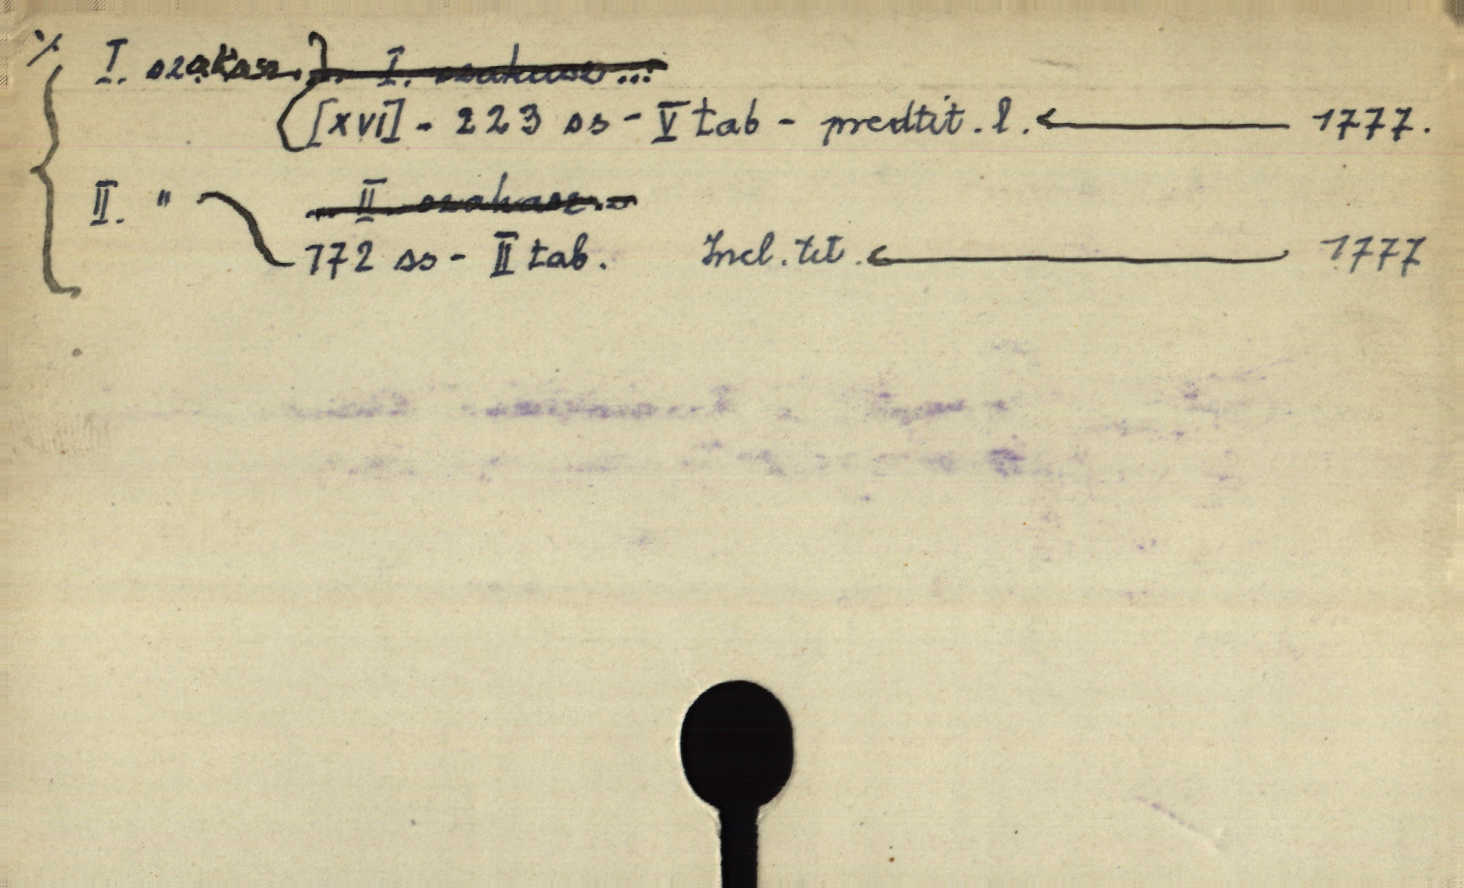 ·/· I. szakasz. ... I. szakasz ...
[XVI] - 223 ss - V tab - predtit. l. 1777.
II. " ... II. szakasz ...
172 ss - II tab. Incl. tit. 1777